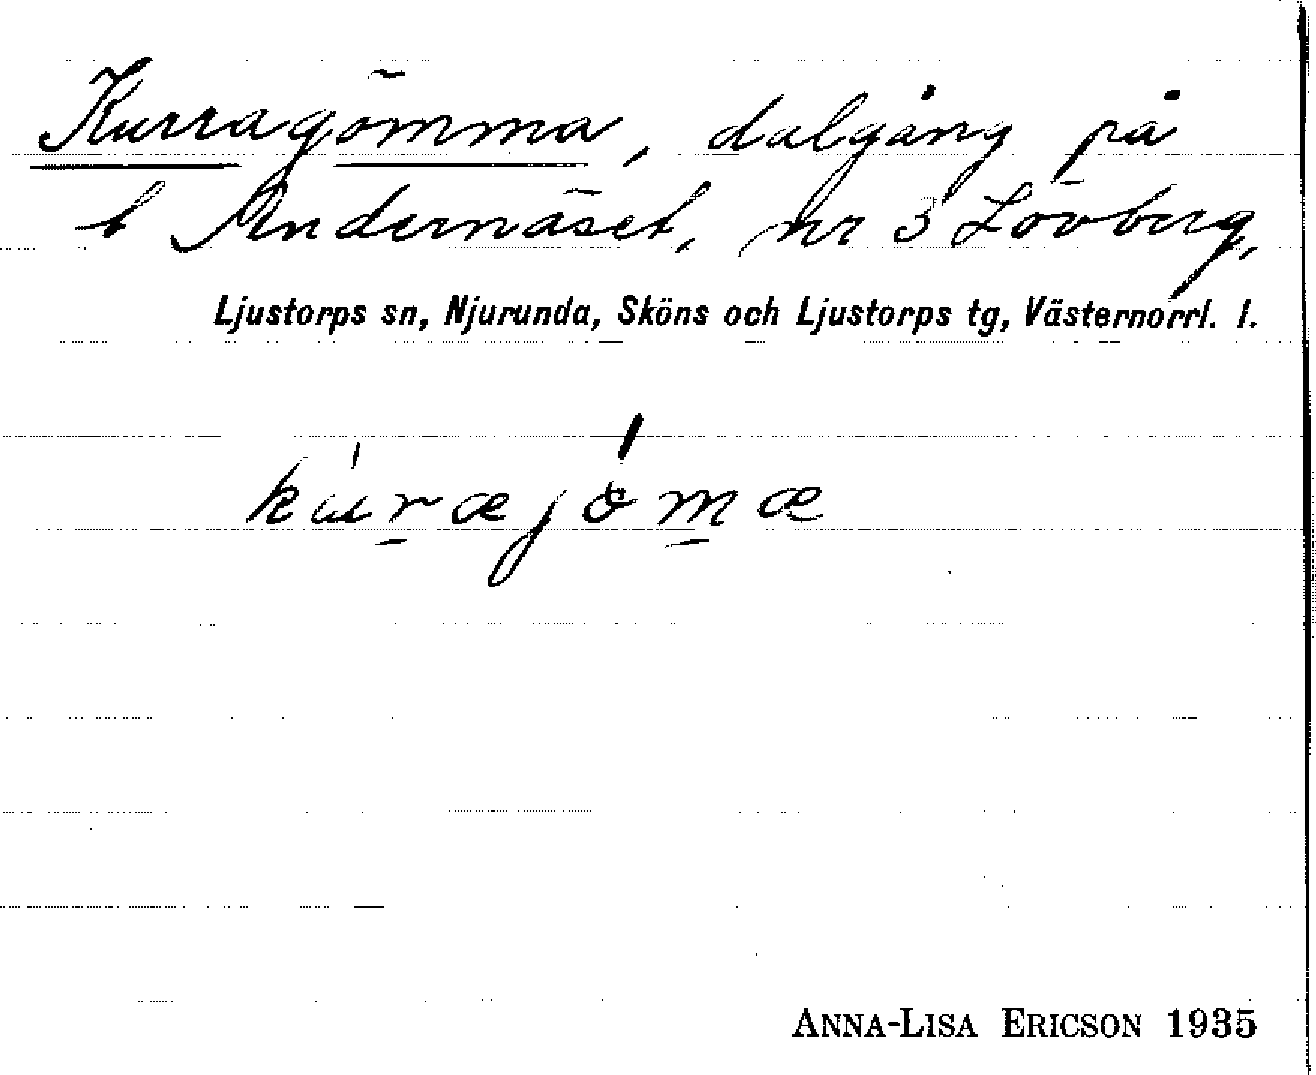 Kurragömma, dalgång på
t Andernäset, nr 3 Lövberg,
Ljustorps sn, Njurunda, Sköns och Ljustorps tg, Västernorrl. l.
kúræjǿmæ
ANNA-LISA ERICSON 1935